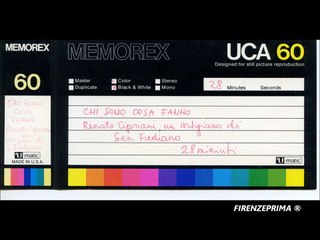 MEMOREX
60
CHI SONO
COSA
FANNO
Renato Cipriani
MADE IN U.S.A.
MEMOREX
UCA 60
Designed for still picture reproduction
Master
Color
Stereo
Duplicate
Black & White
Mono
28 Minutes Seconds
CHI SONO COSA FANNO
Renato Cipriani, un artigiano di
San Frediano
28 minuti
U-matic
U-matic
FIRENZEPRIMA ®